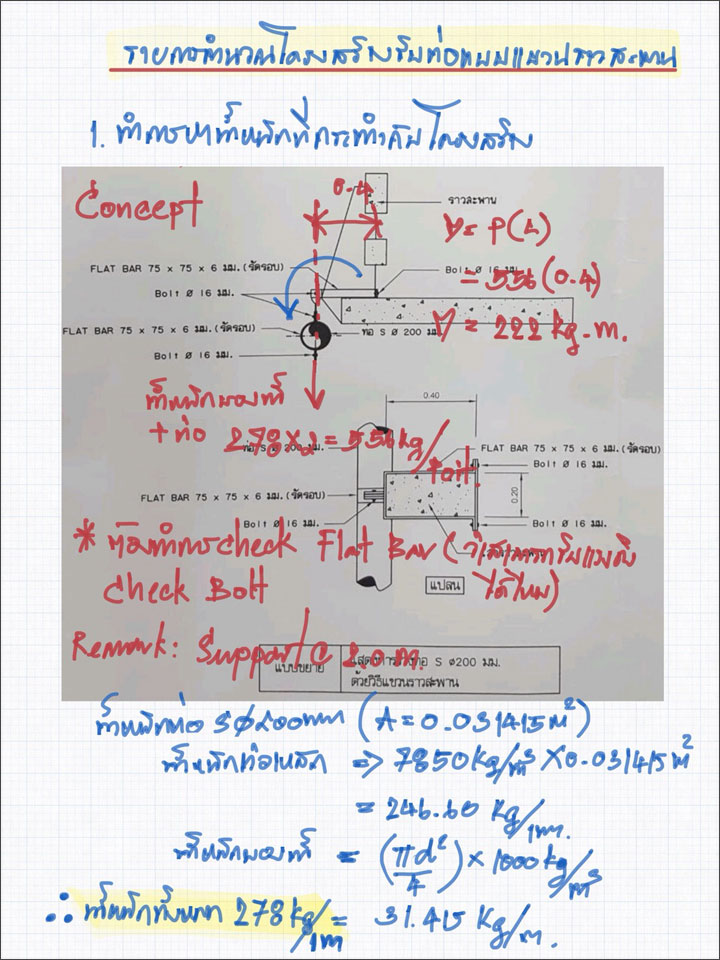 รายการคำนวณโครงสร้างรับท่อแบบแขวนราวสะพาน
1. ทำการหาน้ำหนักที่กระทำกับโครงสร้าง
Concept
0.4
ราวสะพาน
M = P(L)
FLAT BAR 75 x 75 x 6 มม.(รัดรอบ)
Bolt Ø 16 มม.
= 556(0.4)
Bolt Ø 16 มม.
FLAT BAR 75 x 75 x 6 มม.(รัดรอบ)
ท่อ S Ø 200 มม.
M = 222 kg-m.
Bolt Ø 16 มม.
น้ำหนักของน้ำ
0.40
+ ท่อ 278x2 = 556 kg/
ท่อ S Ø 200 มม.
FLAT BAR 75 x 75 x 6 มม.(รัดรอบ)
Bolt Ø 16 มม.
FLAT BAR 75 x 75 x 6 มม.(รัดรอบ)
0.20
Bolt Ø 16 มม.
Bolt Ø 16 มม.
* ต้องทำการ check Flat Bar (
check Bolt
ได้ไหม)
แปลน
Remark: Support @ 2.0 m.
แบบขยาย
แสดงการวางท่อ S Ø200 มม.
ด้วยวิธีแขวนราวสะพาน
น้ำหนักท่อ SØ200mm (A = 0.031415 m²)
น้ำหนักท่อเหล็ก => 7850 kg/m³ x 0.031415 m²
= 246.60 kg/1m.
น้ำหนักของน้ำ = (πd²/4) x 1000 kg/m³
∴ น้ำหนักทั้งหมด 278 kg/1m = 31.415 kg/m.